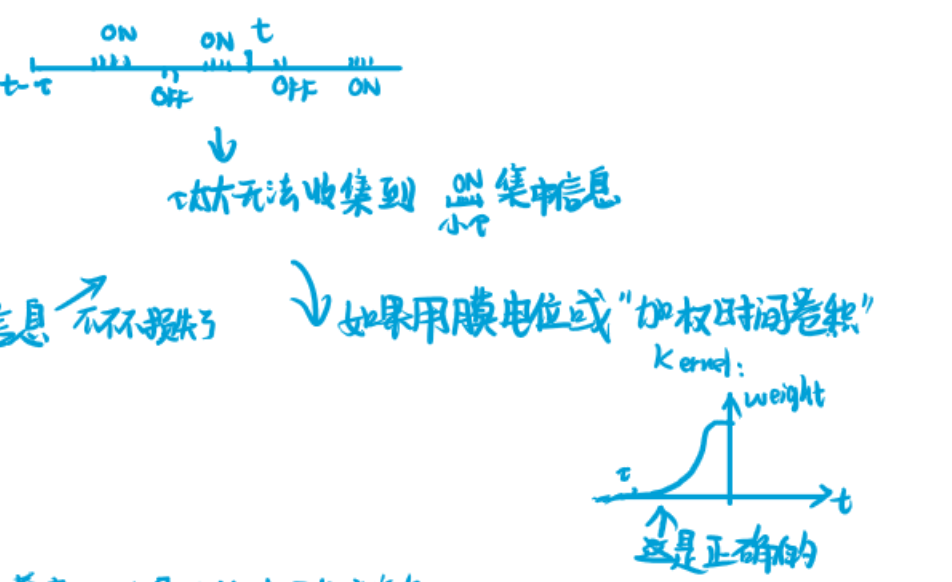 ON ON t
t-τ OFF OFF ON
τ太大无法收集到 ON 集中信息
小τ
信息 不损失了 如果用膜电位或“加权时间卷积”
Kernel:
weight
τ
t
这是正确的